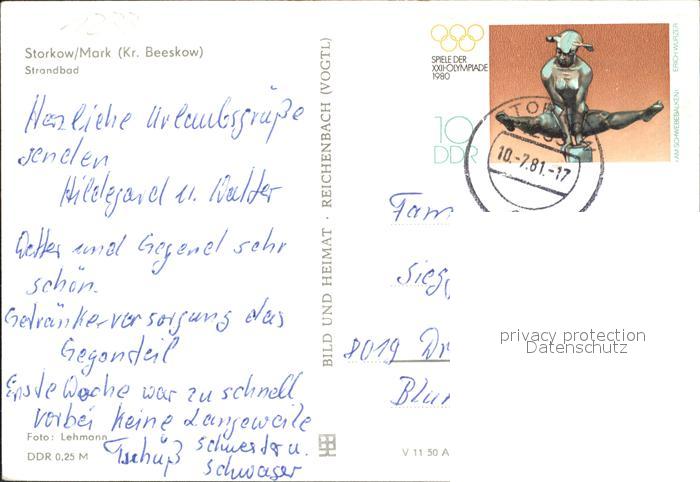 Storkow/Mark (Kr. Beeskow)
Strandbad
Herzliche Urlaubsgrüße
senden
Hildegard u. Walter
Wetter und Gegend sehr
schön.
Getränkeversorgung das
Gegenteil
Erste Woche war zu schnell
vorbei keine Langeweile
Tschüß Schwester u.
Schwager
Foto: Lehmann
DDR 0,25 M
BILD UND HEIMAT · REICHENBACH (VOGTL)
V 11 50 A
SPIELE DER
XXII. OLYMPIADE
1980
10
DDR
ERICH WURZER
»AM SCHWEBEBALKEN«
10.-7.81.-17
Fam
8019 Dr
privacy protection
Datenschutz